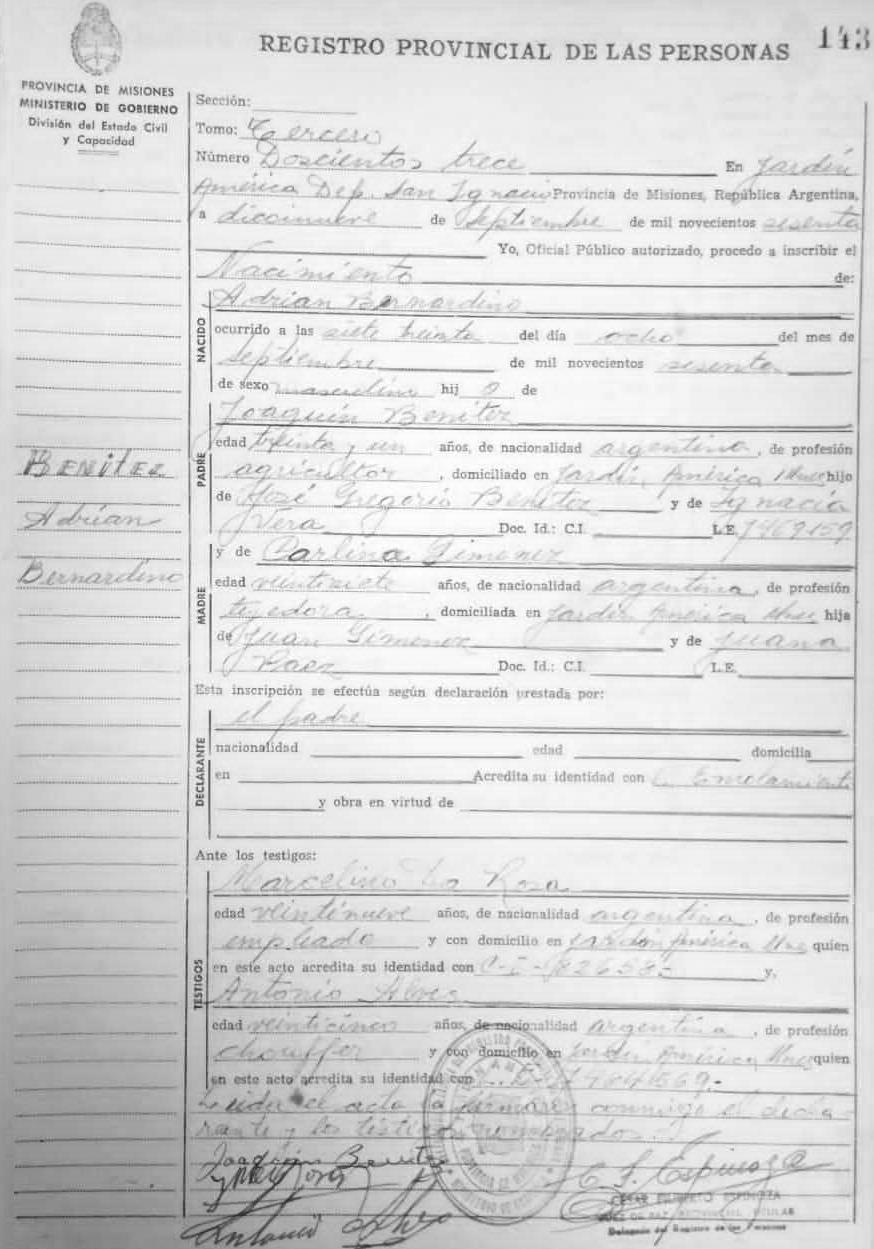 REGISTRO PROVINCIAL DE LAS PERSONAS 143
PROVINCIA DE MISIONES
MINISTERIO DE GOBIERNO
División del Estado Civil
y Capacidad
Sección:
Tomo: Tercero
Número Doscientos trece En Jardín
América Dep. San Ignacio Provincia de Misiones, República Argentina,
a diecinueve de Septiembre de mil novecientos sesenta
Yo, Oficial Público autorizado, procedo a inscribir el
Nacimiento de:
NACIDO
Adrian Bernardino
ocurrido a las siete treinta del día ocho del mes de
Septiembre de mil novecientos sesenta
de sexo masculino hij o de
Joaquín Benítez
PADRE
edad treinta y un años, de nacionalidad argentino, de profesión
agricultor, domiciliado en Jardín América hijo
de José Gregorio Benítez y de Ignacia
Vera Doc. Id.: C.I. L.E. 7469159
BENITEZ
Adrian
Bernardino
y de Carlina Gimenez
MADRE
edad veintisiete años, de nacionalidad argentina, de profesión
tejedora, domiciliada en Jardín América hija
de Juan Gimenez y de Juana
Paez Doc. Id.: C.I. L.E.
Esta inscripción se efectúa según declaración prestada por:
el padre
DECLARANTE
nacionalidad edad domicilia
en Acredita su identidad con Enrolamiento
y obra en virtud de
Ante los testigos:
Marcelino La Rosa
TESTIGOS
edad veintinueve años, de nacionalidad argentina, de profesión
empleado y con domicilio en Jardín América quien
en este acto acredita su identidad con C-I-82658- y,
Antonio Alves
edad veinticinco años, de nacionalidad argentina, de profesión
chouffer y con domicilio en Jardín América quien
en este acto acredita su identidad con
Leida el acta la firmaron conmigo el decla-
rante y los testigos nombrados.-
Joaquín Benitez
C. F. Espinoza
Antonio Alves
ESPINOZA
JUEZ DE PAZ
Delegado del Registro de las Personas